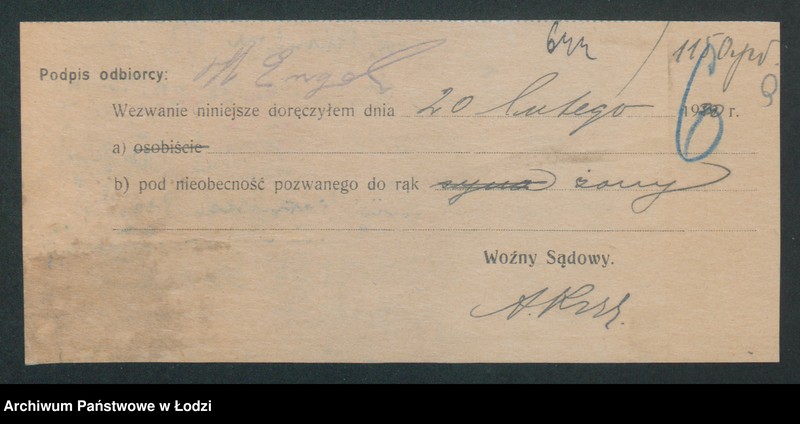 644 / 1150
Podpis odbiorcy: M Engel
Wezwanie niniejsze doręczyłem dnia 20 lutego 19 r.
6
a) osobiście
b) pod nieobecność pozwanego do rąk syna żony
Woźny Sądowy.
Archiwum Państwowe w Łodzi